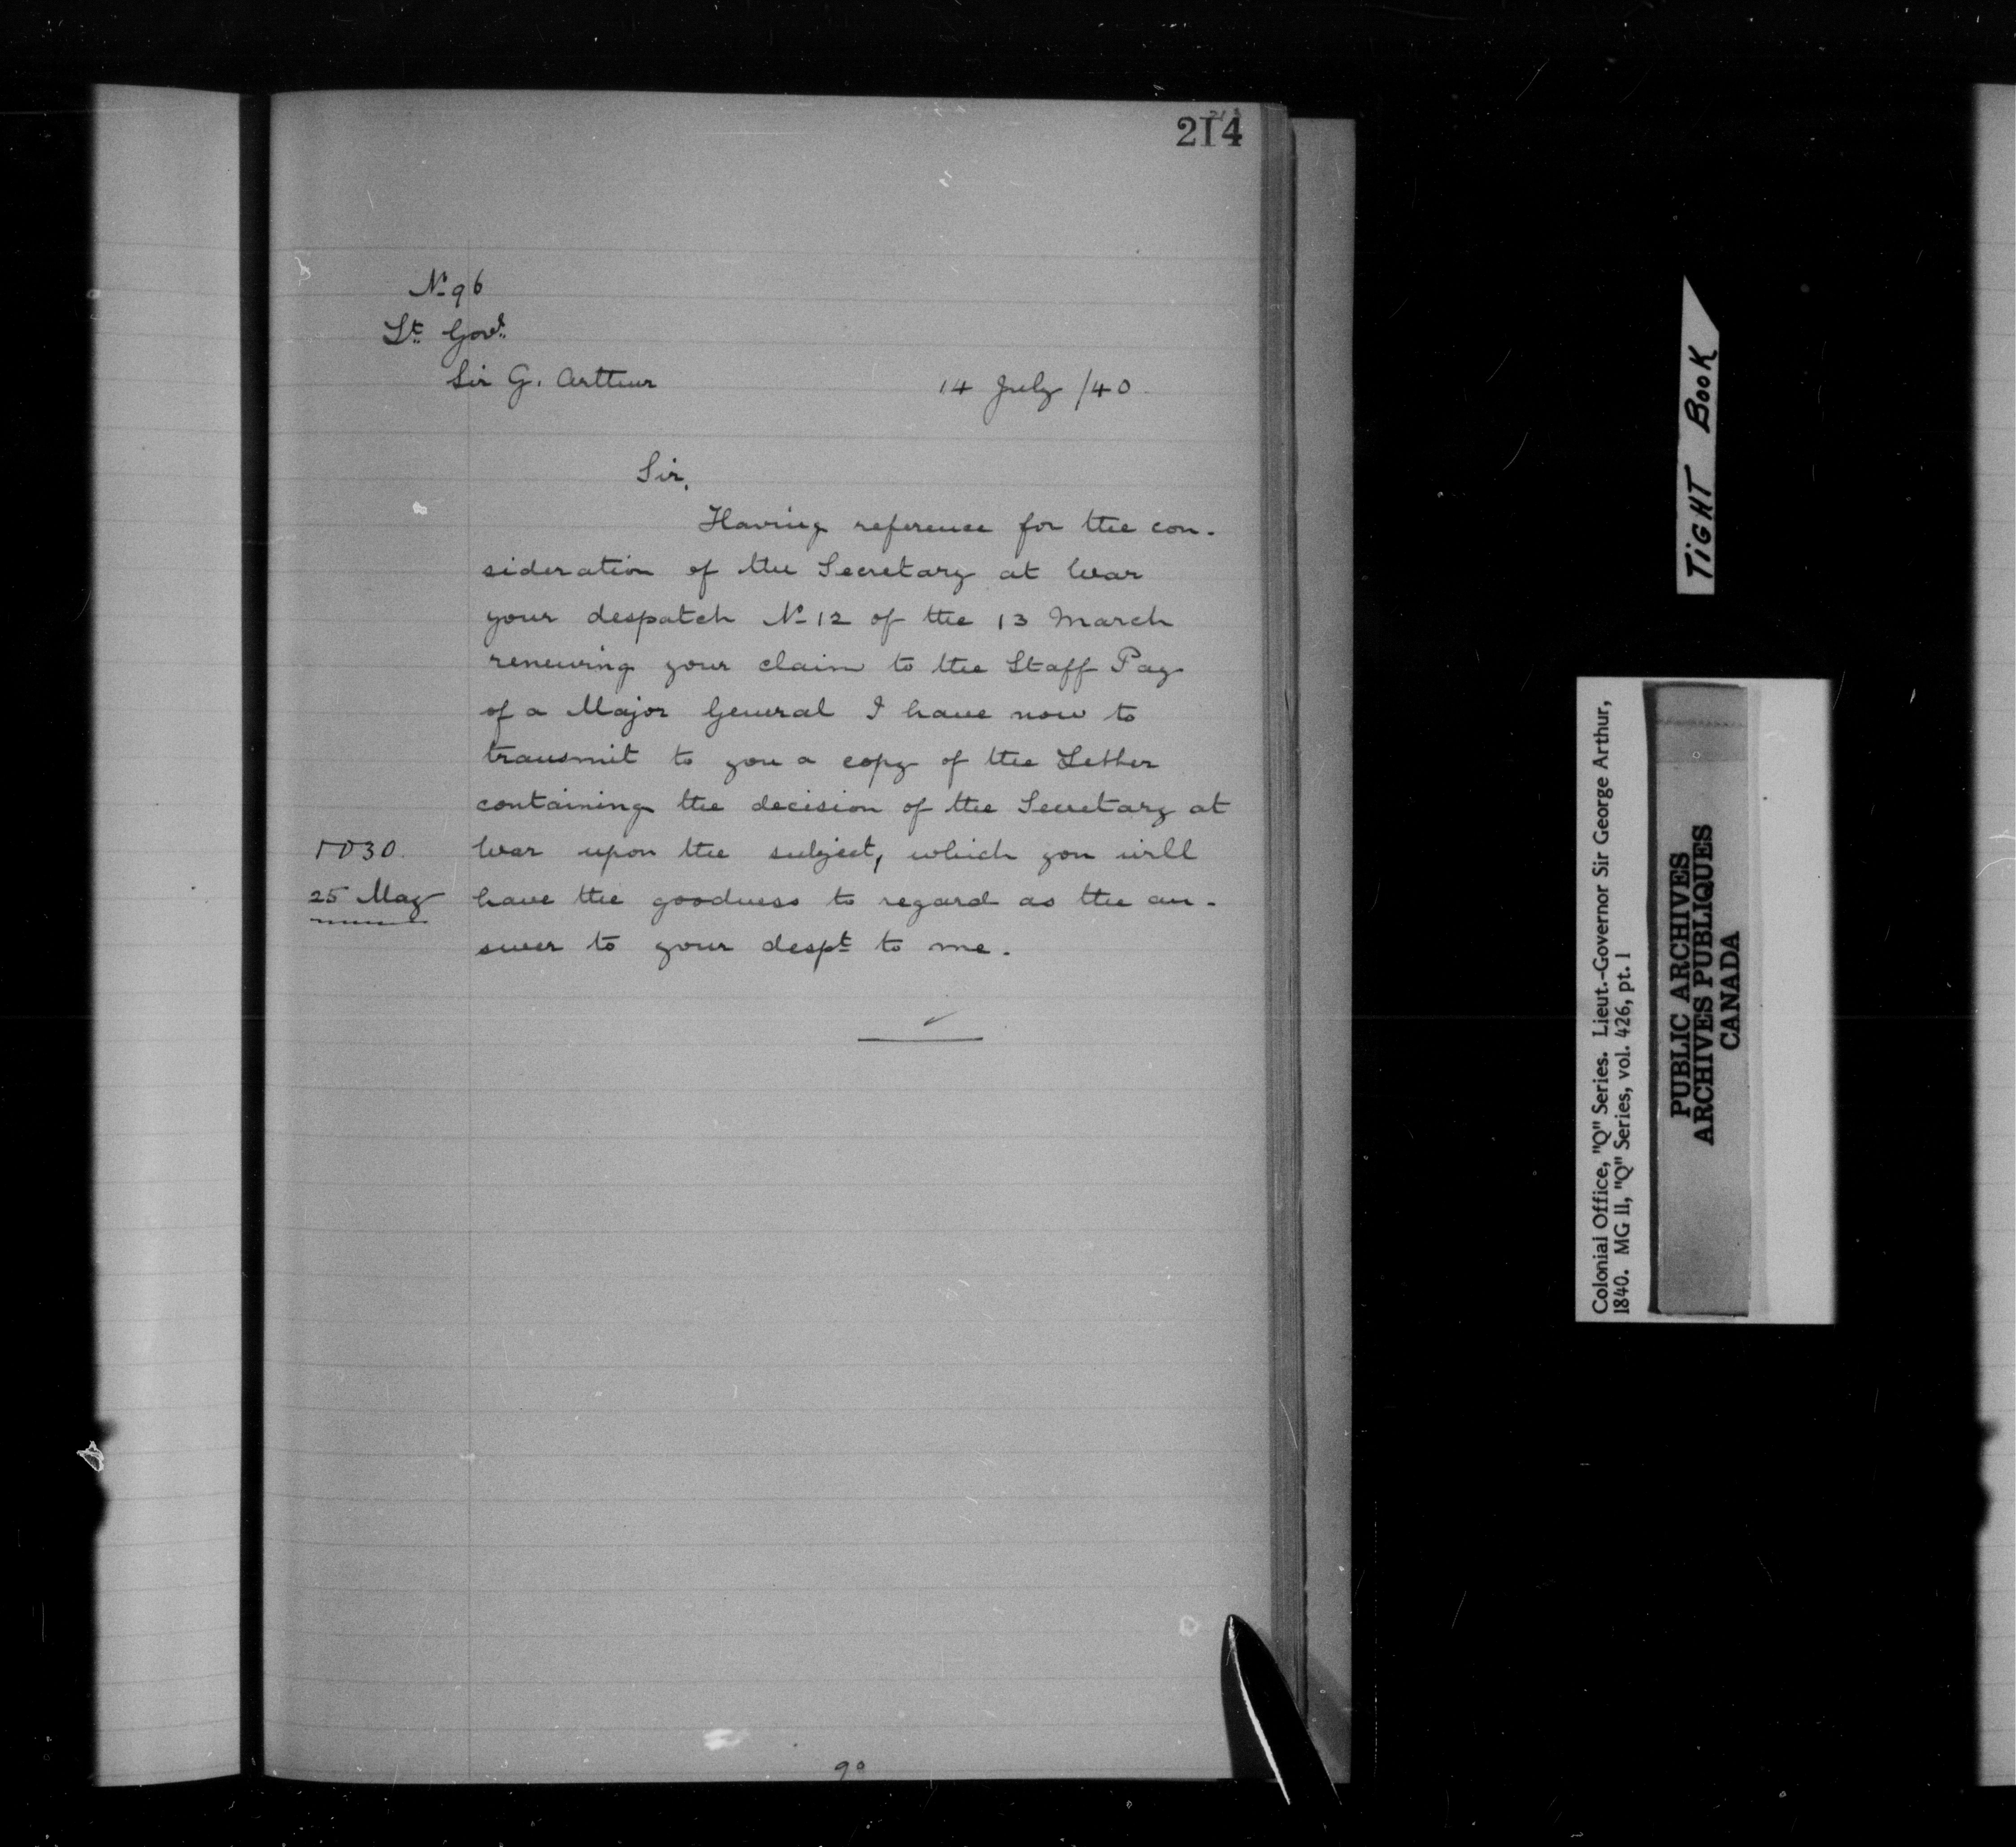 214
No 96
Lt Govr
Sir G. Arthur
14 July /40
Sir,
Having reference for the con-
sideration of the Secretary at War
your despatch No 12 of the 13 March
renewing your claim to the Staff Pay
of a Major General I have now to
transmit to you a copy of the Letter
containing the decision of the Secretary at
War upon the subject, which you will
have the goodness to regard as the an-
swer to your despt to me.
25 May
TIGHT BOOK
Colonial Office, "Q" Series. Lieut.-Governor Sir George Arthur,
1840. MG 11, "Q" Series, vol. 426, pt. 1
PUBLIC ARCHIVES
ARCHIVES PUBLIQUES
CANADA